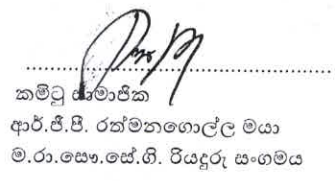 කමිටු සාමාජික
ආර්.ජී.පී. රත්මනගොල්ල මයා
ම.රා.සෞ.සේ.ගි. රියදුරු සංගමය